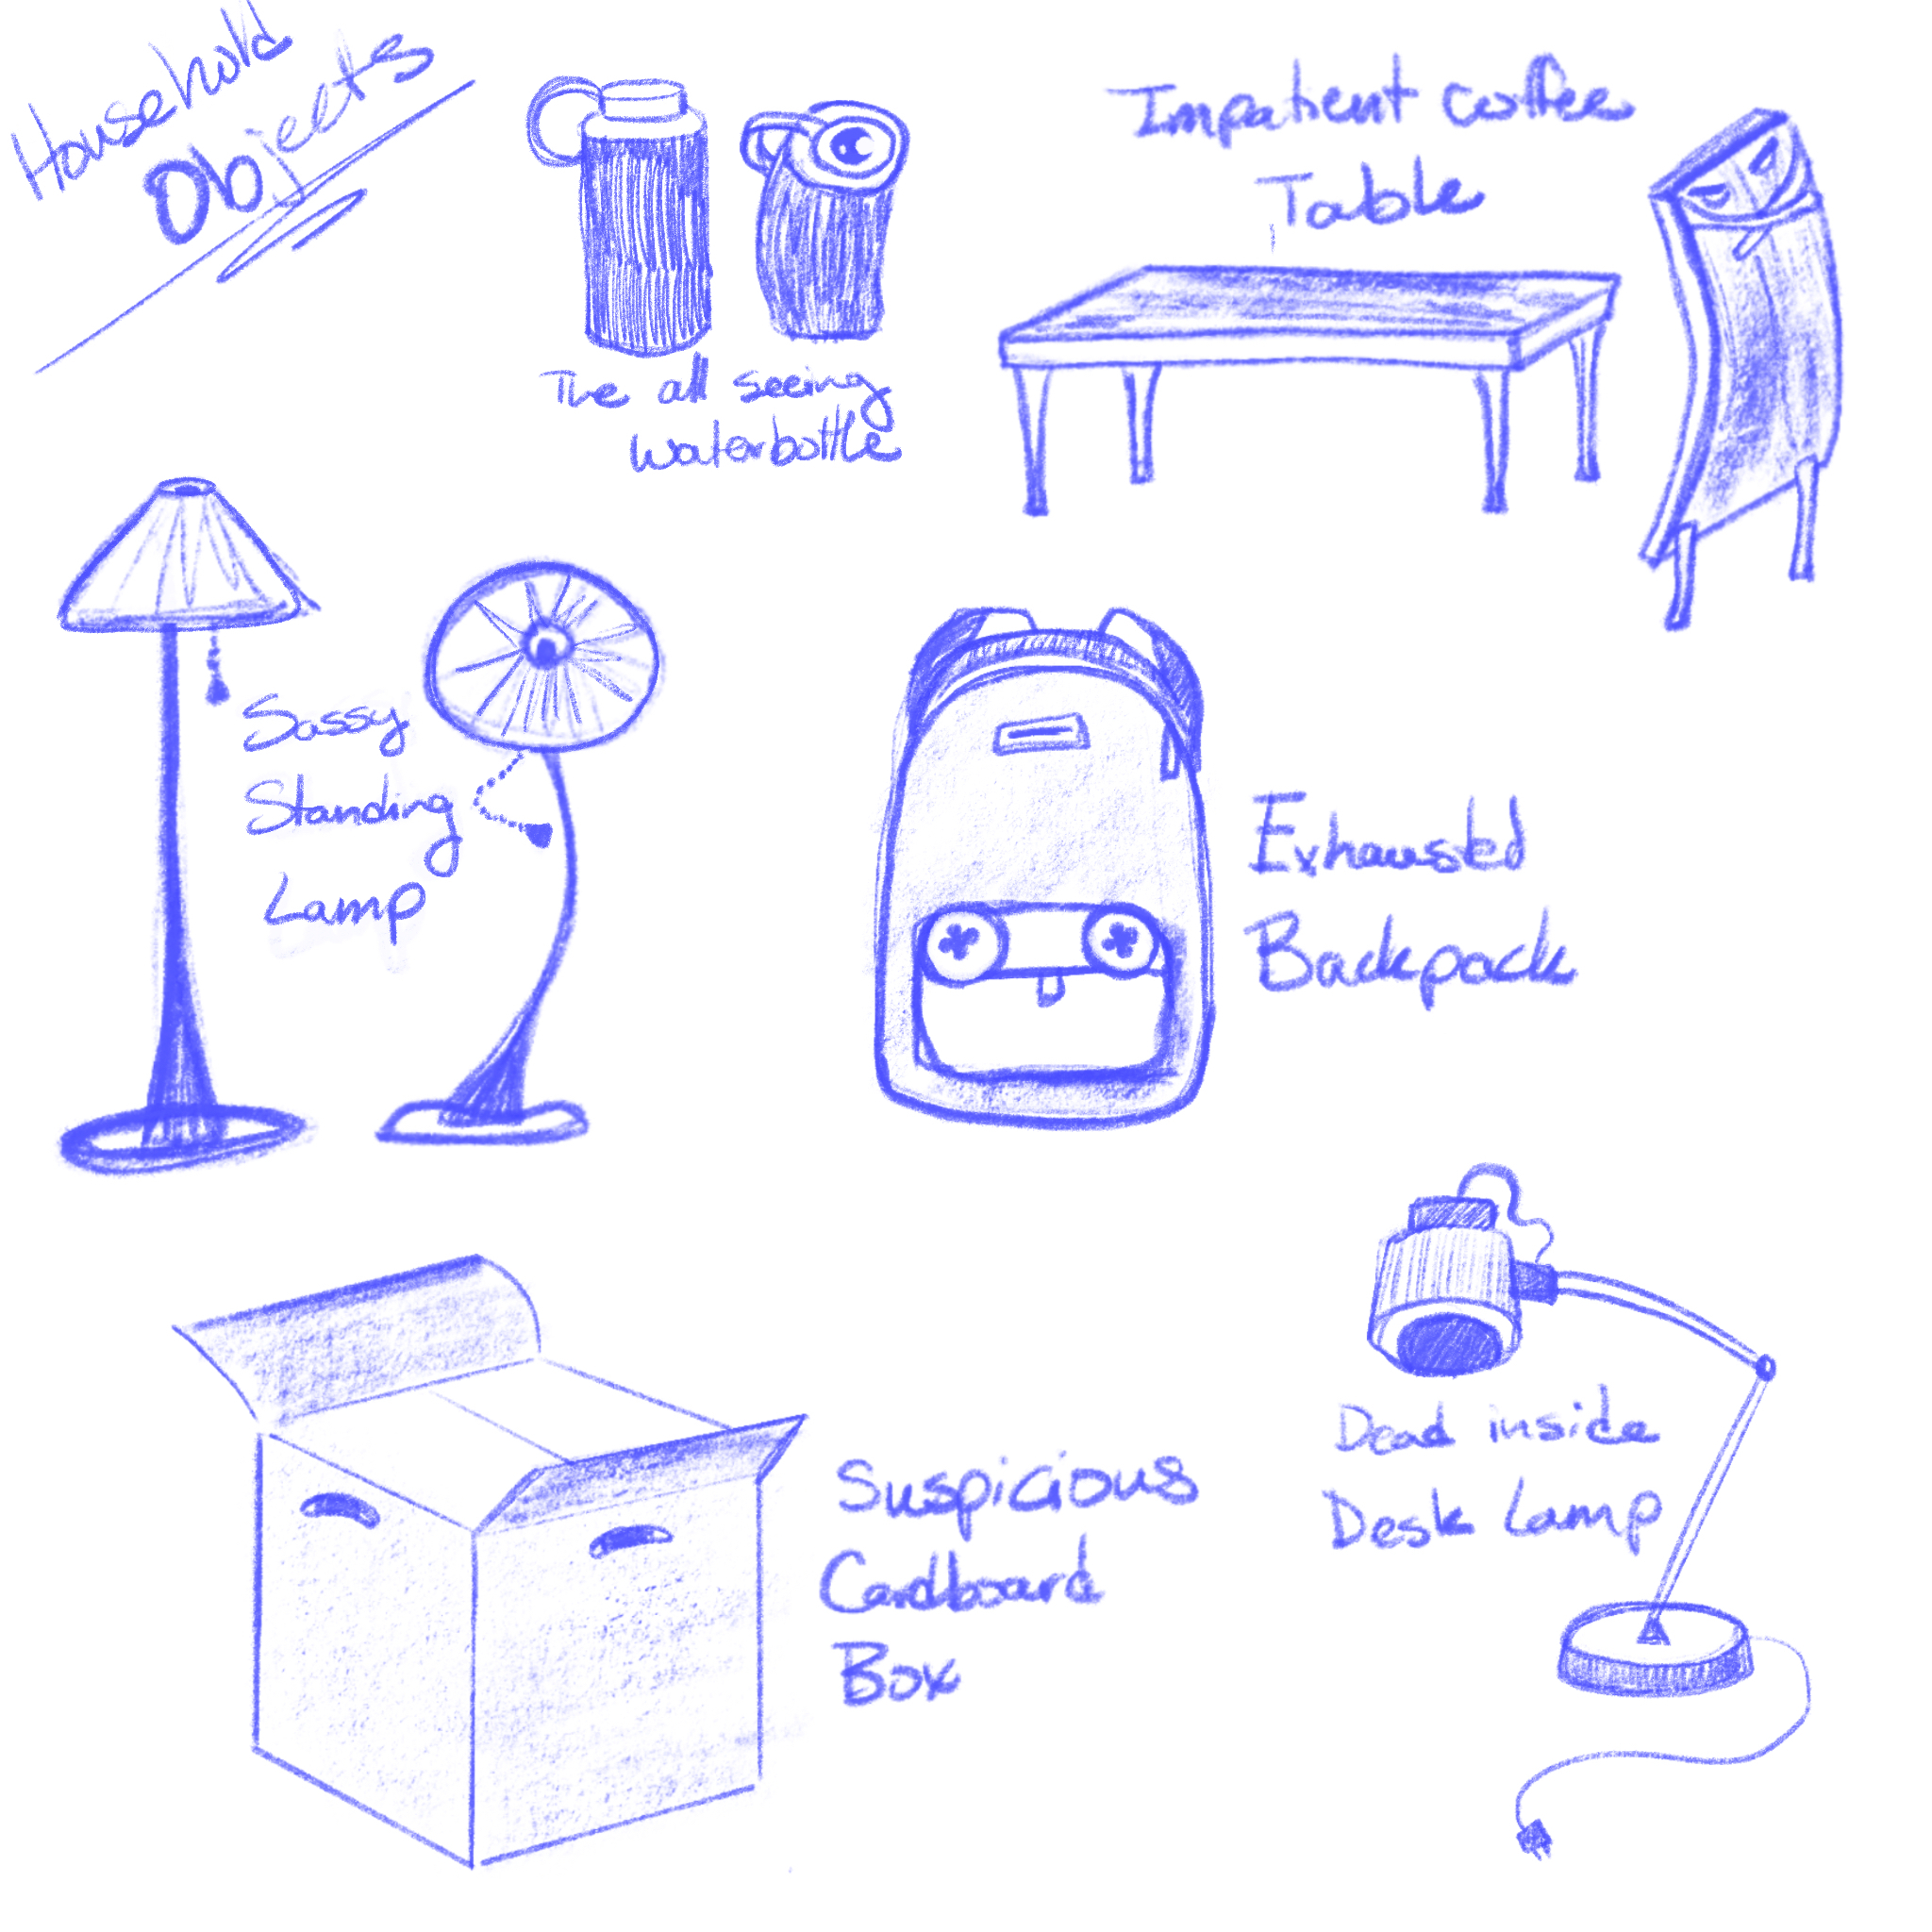 Household
Objects
The all seeing
waterbottle
Impatient Coffee
Table
Sassy
Standing
Lamp
Exhausted
Backpack
Suspicious
Cardboard
Box
Dead inside
Desk Lamp